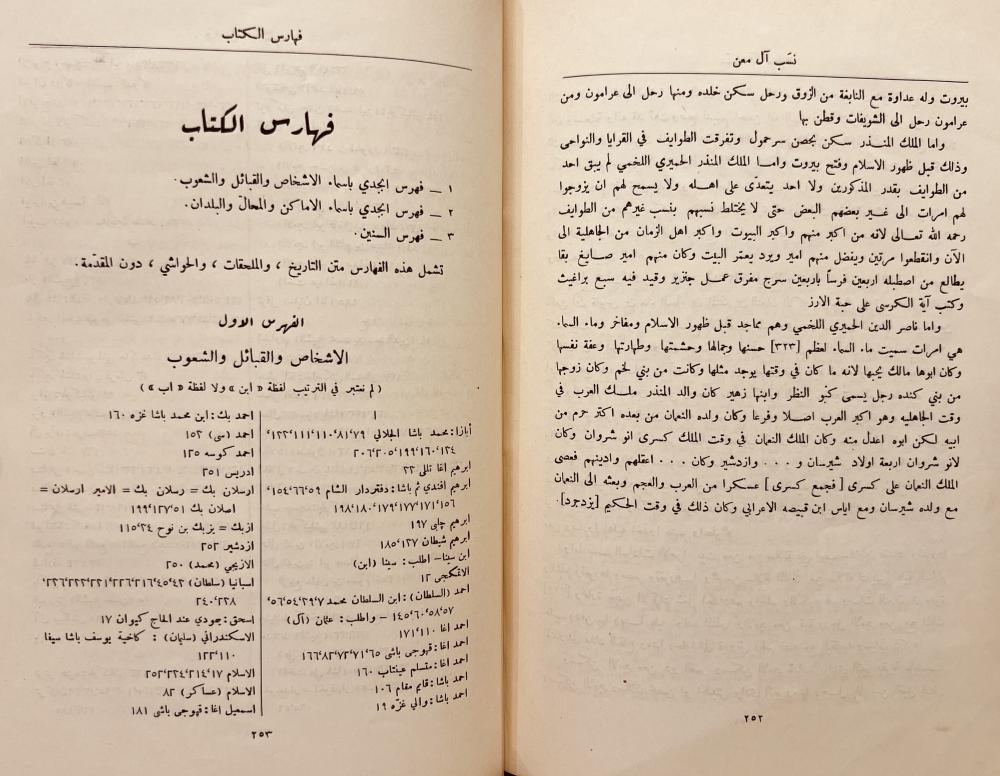 نسَب آل معن
بيروت وله عداوة مع النابغة من الزوق ورحل سكن خلده ومنها رحل الى عرامون ومن
عرامون رحل الى الشويفات وقطن بها
واما الملك المنـذر سكن بحصن سرحمول وتفرقت الطوايف في القرايا والنواحى
وذلك قبل ظهور الاسلام وفتح بيروت وامـا الملك المنذر الحميري اللخمي لم يبق احد
من الطوايف بقدر المذكورين ولا احد يتعدّى على اهـله ولا يسمح لهم ان يزوجوا
لهم امرات الى غـير بعضهم البعض حتى لا يختلط نسبهم بنسب غيرهم من الطوايف
رحمه الله تعـالى لانه من اكبر منهم واكبر البيوت واكبر اهل الزمان من الجاهلية الى
الآن وانقطعوا مرتين ويفضل منهم امير ويرد يعمّر البيت وكان منهم امير صـايغ بقا
يطالع من اصطبله اربعين فرساً باربعين سرج مفرق عمـل جنزير وقيد فيه سبع براغيث
وكتب آية الكرسى على حبة الارز
واما ناصر الدين الحميري اللخمي وهم مماجد قبل ظهور الاسلام ومفاخر وماء السماء
هي امرات سميت ماء السماء لعظم [٣٢٣] حسنها وجمالها وحشمتها وطهارتها وعفة نفسها
وكان ابوها مالك يحبها لانه ما كان في وقتها يوجد مثلها وكانت من بني لخم وكان زوجها
من بني كنده رجل يسمى كبو النظر وابنها زهير كان والد المنذر ملـك العرب في
وقت الجاهليه وهو اكبر العرب اصـلا وفرعا وكان ولده النعمان من بعده اكتر حرم من
ابيه لكن ابوه اعدل منه وكان الملك النعمان في وقت الملك كسرى انو شروان وكان
لانو شروان اربعة اولاد شيرسان و . . . وازدشير وكان . . . اعقلهم وادينهم فعصى
الملك النعمان على كسرى [ فجمع كسرى ] عسكرا من العرب والعجم وبعثه الى النعمان
مع ولده شيرسان ومع اياس ابن قبيصه الاعرابي وكان ذلك في وقت الحكيم [يزدجرد].
٢٥٢
فهارس الكتاب
فهارس الكتاب
١ ــ فهرس ابجدي باسماء الاشخاص والقبائل والشعوب.
٢ ــ فهرس ابجدي باسماء الاماكن والمحالّ والبلدان.
٣ ــ فهرس السنين.
تشمل هذه الفهارس متن التاريخ ، والملحقات ، والحواشي ، دون المقدّمة.
الفهرس الاول
الاشخاص والقبائل والشعوب
(لم نعتبر في الترتيب لفظة « ابن » ولا لفظة « اب »)
ا
أبازا: محمد باشا الجلالي ٧٩،٨١،١١٠،١١١،١٢٢،
١٢٤،١٦٠،١٩٩،٢٠٥،٢٠٦
ابرهيم اغا تللى ٢٢
ابرهيم افندي ثم باشا: دفتردار الشام ٥٩،٦٦،١٥٤،
١٥٦،١٧١،١٧٧،١٧٩،١٨٠،١٩٨
ابرهيم چلبى ١٩٧
ابرهيم شيطان ١٢٧،١٨٥
ابن سينا- اطلب : سينا (ابن)
١٢
احمد (السلطان): ابن السلطان محمد ٧،٢٩،٥٤،٥٦،
٥٧،٥٨،٦٠،١٤٥ – واطلب : عثمان (آل)
احمد اغا ١١٠،١٧١
احمد اغا: قپوجى باشى ٦٥،٧١،٧٢،٨٢،١٦٦
احمد اغا: متسلم عينتاب ١٦٠
احمد باشا: قايم مقام ١٠٦
احمد باشا: والي غزّه ١٩
احمد بك: ابن محمد باشا غزه ١٦٠
احمد (سى) ١٥٢
احمد كوسه ١٢٥
ادريس ٢٥١
ارسلان بك = رسلان بك = الامير ارسلان =
اصلان بك ٥١،١٢٧،١٩٩
ازبك = يزبك بن نوح ٢٤،١١٥
ازدشير ٢٥٢
الازيجي (محمد) ٢٥٠
اسبانيا (سلطان) ٤٢،٤٥،٢١٦،٢٢٦،٢٢١،٢٢٢،٢٢٦،
٢٢٨،٢٤٠
اسحق: جودي عند الحاج كيوان ١٧
الاسكندراني (سليمان) : كاخية يوسف باشا سيفا
١١٠،١٢٢
الاسلام ١٧،٢١٤،٢٢٤،٢٥٢
الاسلام (عساكر) ٨٢
اسمعيل اغا: قپوجى باشى ١٨١
٢٥٣